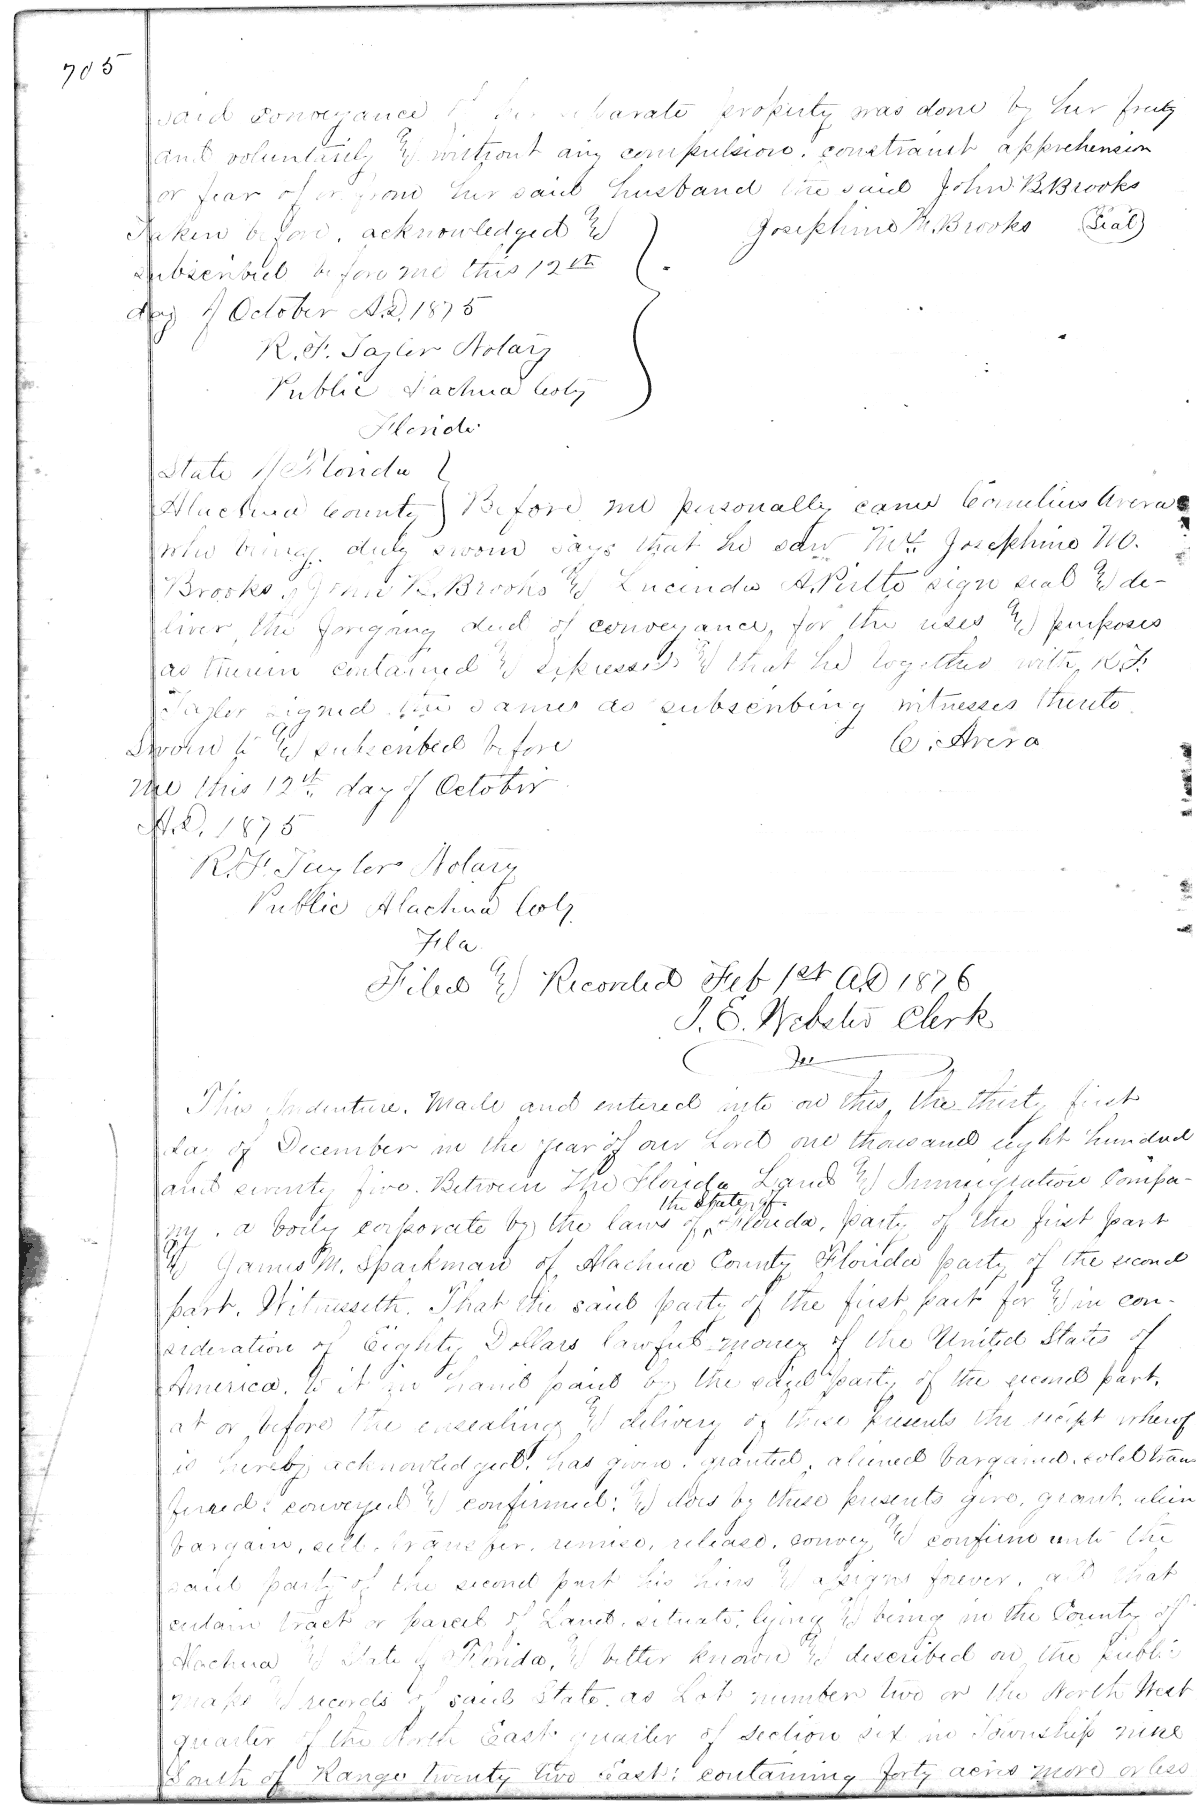 705
said conveyance of her separate property was done by her freely
and voluntarily & without any compulsion. constraint apprehension
or fear of or from her said husband the said John B. Brooks
Taken before, acknowledged & Josephine M. Brooks (Seal)
subscribed before me this 12th
day of October A.D. 1875
R. F. Tayler Notary
Public Alachua Coty
Florida
State of Florida
Alachua County } Before me personally came Cornelius Avera
who being duly sworn says that he saw Mrs Josephine M.
Brooks, John B. Brooks & Lucinda A. sign seal & de-
liver the foregoing deed of conveyance, for the uses & purposes
as therein contained & expressed & that he together with R. F.
Tayler signed the same as subscribing witnesses thereto.
Sworn to & subscribed before C. Avera
me this 12th day of October
A.D. 1875
R. F. Tayler Notary
Public Alachua Coty
Fla
Filed & Recorded Feb 1st AD 1876
J. E. Webster Clerk
This Indenture. Made and entered into on this, the thirty first
day of December in the year of our Lord one thousand eight hundred
and seventy five. Between The Florida Land & Immigration Compa-
the State of
ny, a body corporate by the laws of Florida, party of the first part
& James M. Sparkman of Alachua County Florida party of the second
part. Witnesseth. That the said party of the first part for & in con-
sideration of Eighty Dollars lawful money of the United States of
America. to it in hand paid by the said party of the second part,
at or before the ensealing & delivery of these presents the receipt whereof
is hereby acknowledged, has given, granted, aliened bargained, sold trans
ferred, conveyed & confirmed; & does by these presents give, grant, alien
bargain, sell, transfer, remise, release, convey & confirm unto the
said party of the second part his heirs & assigns forever, all that
certain tract or parcel of Land, situate, lying & being in the County of
Alachua & State of Florida, & better known & described on the public
maps & records of said State. as Lot number two or the North West
quarter of the North East quarter of section six in Township nine
South of Range twenty two East; containing forty acres more or less